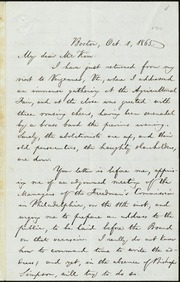 Boston, Oct. 1, 1865.
My dear Mr. Kim
I have just returned from my
visit to Vergennes, Vt., where I addressed
an immense gathering at the Agricultural
Fair, and at the close was greeted with
three rousing cheers, having been
at a brass band the previous
Surely, the abolitionists are up, and
their old persecutors, the haughty slaveholders,
are down.
Your letter is before me,
me of an adjourned meeting of the
Managers of the Freedmen's Commission
in Philadelphia, on the 11th inst., and
urging me to prepare an address to the
public, to be laid before the Board
on that occasion. I really do not know
how to command time to write the
address; and yet, in the absence of Bishop
Simpson, will try to do so.